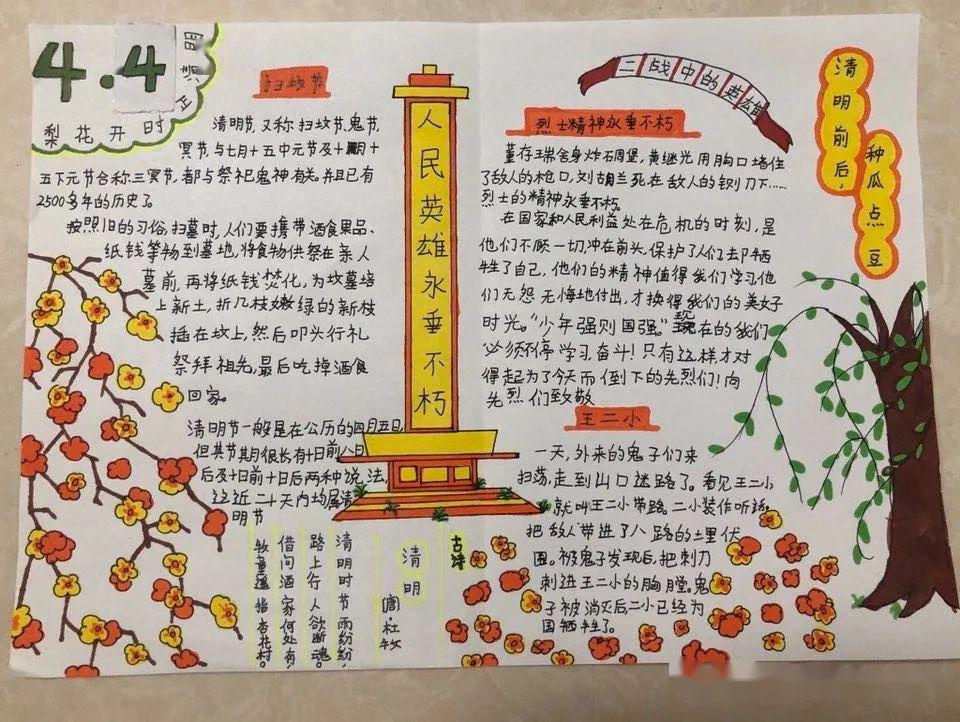 4.4
梨花开时正清明
扫坟节
清明节,又称扫坟节、鬼节、
冥节,与七月十五中元节及十月十
五下元节合称三冥节,都与祭祀鬼神有关。并且已有
2500多年的历史了。
按照旧的习俗,扫墓时,人们要携带酒食果品、
纸钱等物到墓地,将食物供祭在亲人
墓前,再将纸钱焚化,为坟墓培
上新土,折几枝嫩绿的新枝
插在坟上,然后叩头行礼
祭拜祖先,最后吃掉酒食
回家。
清明节一般是在公历的四月五日
但其节期很长有十日前八日
后及十日前十日后两种说法,
这近二十天内均属清
明节
人民英雄永垂不朽
古诗
清明
唐·杜牧
清明时节雨纷纷,
路上行人欲断魂。
借问酒家何处有
牧童遥指杏花村。
二战中的英雄
烈士精神永垂不朽
董存瑞舍身炸碉堡,黄继光用胸口堵住
了敌人的枪口,刘胡兰死在敌人的铡刀下……
烈士的精神永垂不朽。
在国家和人民利益处在危机的时刻,是
他们不顾一切,冲在前头,保护了人们去却牺
牲了自己,他们的精神值得我们学习他
们无怨无悔地付出,才换得我们的美好
时光。“少年强则国强。”现在的我们
必须不停学习奋斗!只有这样才对
得起为了今天而倒下的先烈们!向
先烈们致敬
王二小
一天,外来的鬼子们来
扫荡,走到山口迷路了。看见王二小
就叫王二小带路。二小装作听话。
把敌人带进了八路的土里伏
圈。被鬼子发现后,把刺刀
刺进王二小的胸膛。鬼
子被消灭后二小已经为
国牺牲了。
清明前后,
种瓜点豆